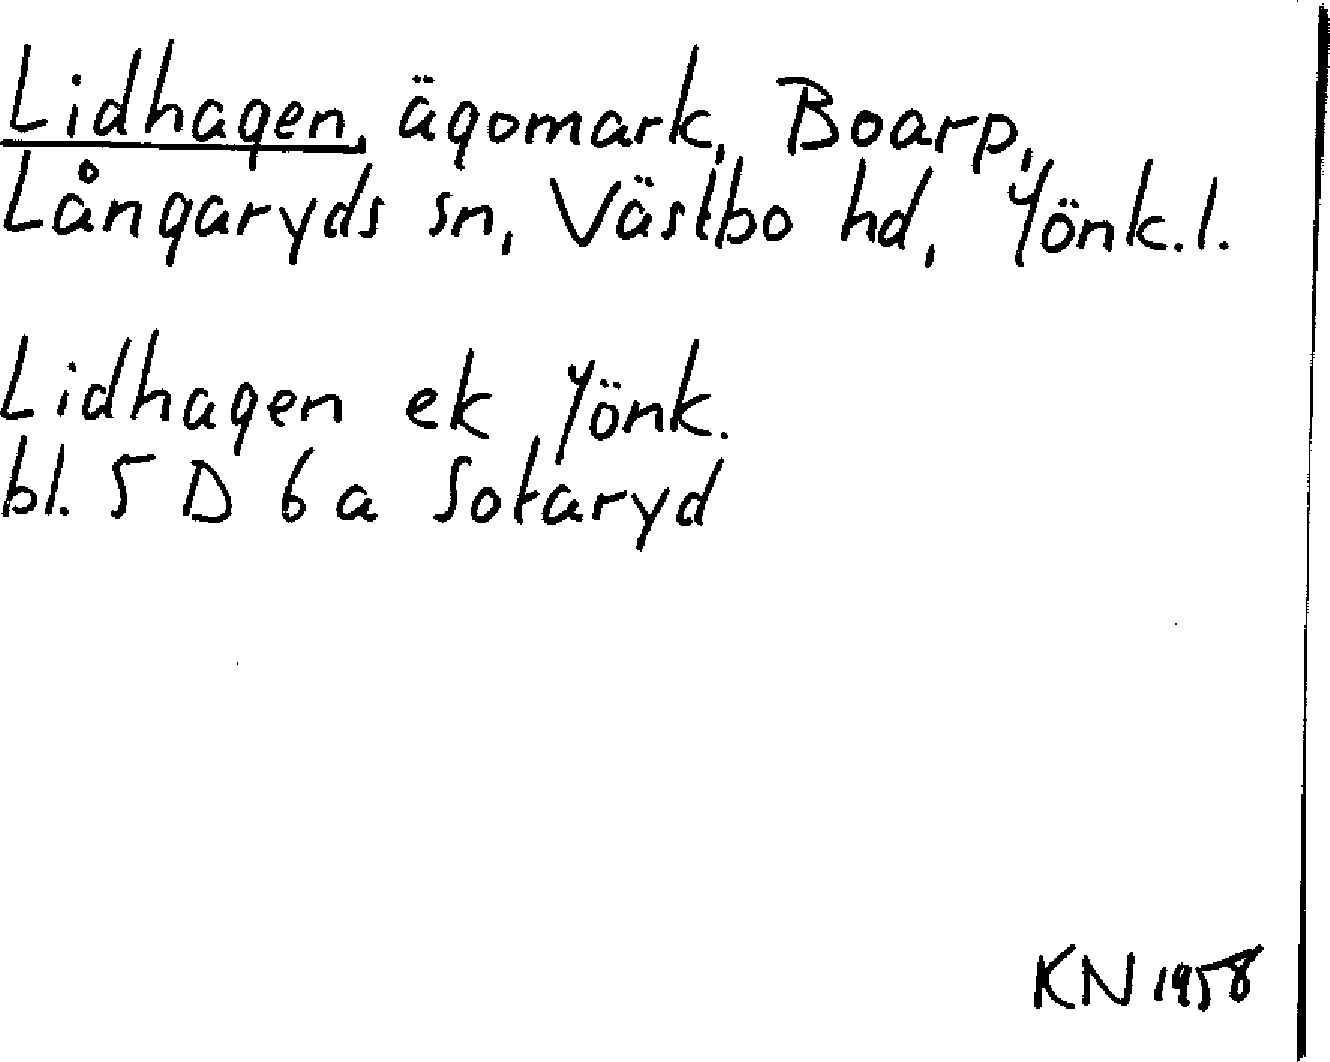 Lidhagen, ägomark, Boarp,
Långaryds sn, Västbo hd, Jönk.l.
Lidhagen ek Jönk.
bl. 5 D 6 a Sotaryd
KN 1958